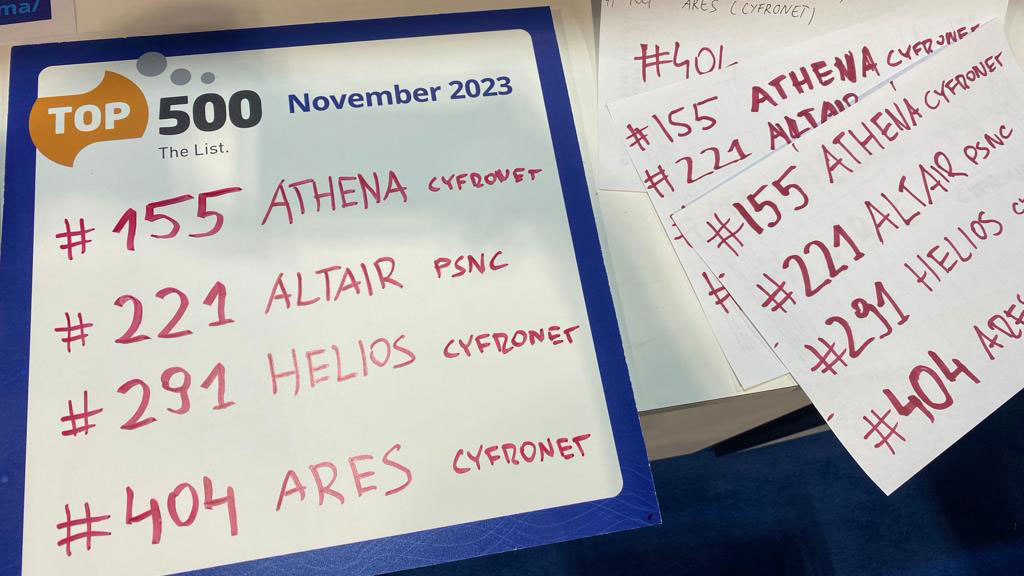 ma/
TOP 500
The List.
November 2023
# 155 ATHENA CYFRONET
# 221 ALTAIR PSNC
# 291 HELIOS CYFRONET
# 404 ARES CYFRONET
ARES (CYFRONET)
#404
#155 ATHENA CYFRONET
#221 ALTAIR
#155 ATHENA CYFRONET
#221 ALTAIR PSNC
#291 HELIOS
#404 ARES